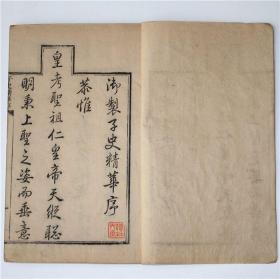 御製子史精華序
恭惟
皇考聖祖仁皇帝天縱聰
明秉上聖之姿而垂意